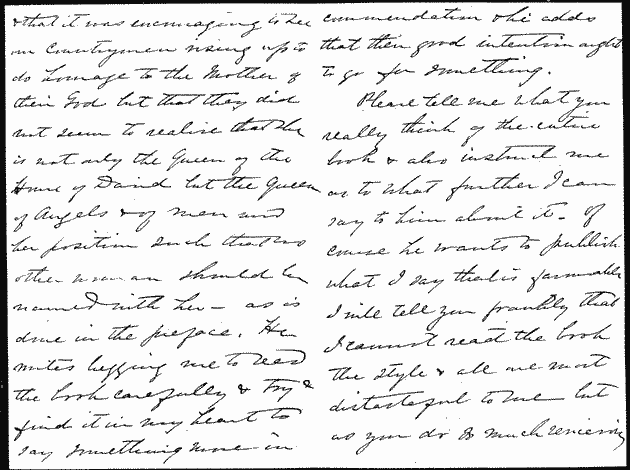 & that it was encouraging to see
our Countrymen rising up to
do homage to the Mother of
their God but that they did
not seem to realise that she
is not only the Queen of the
House of David but the Queen
of Angels & of men and
her position such that no
other woman should be
named with her – as is
done in the preface. He
writes begging me to read
the book carefully & try &
find it in my heart to
say something more in
commendation & he adds
that their good intention ought
to go for something.
Please tell me what you
really think of the entire
book & also instruct me
as to what further I can
say to him about it – Of
course he wants to publish
what I say that is favorable
I will tell you frankly that
I cannot read the book
the style & all are most
distasteful to me but
as you do so much reviewing